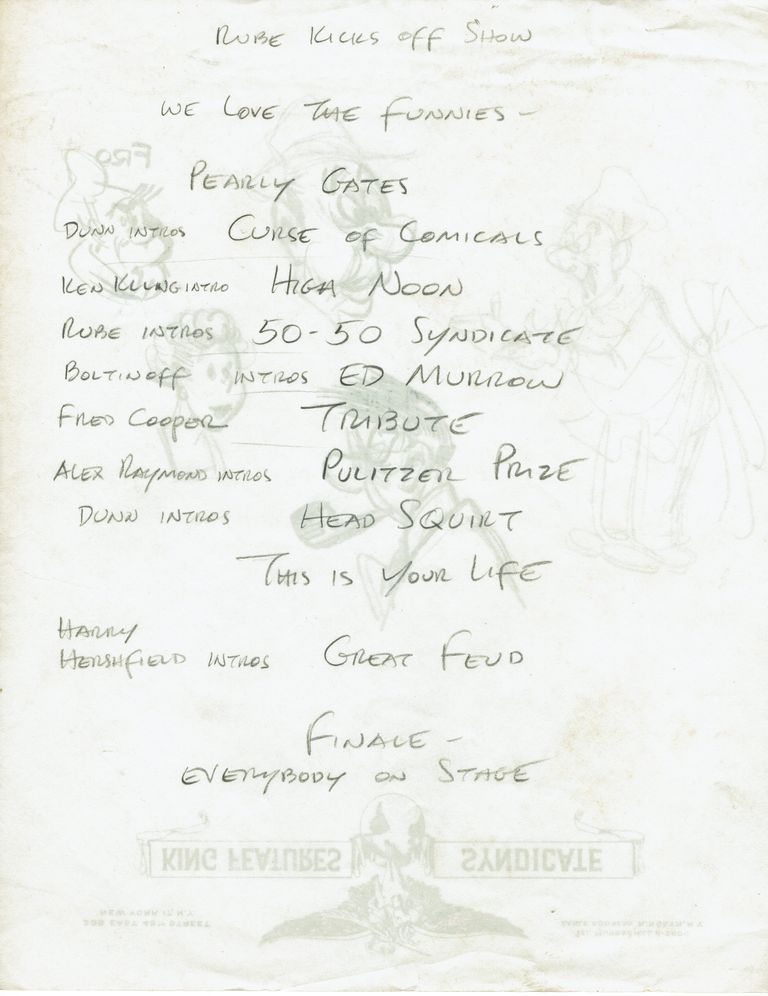 RUBE KICKS OFF SHOW
WE LOVE THE FUNNIES -
PEARLY GATES
DUNN INTROS CURSE OF COMICALS
KEN KLING INTRO HIGH NOON
RUBE INTROS 50-50 SYNDICATE
BOLTINOFF INTROS ED MURROW
FRED COOPER TRIBUTE
ALEX RAYMOND INTROS PULITZER PRIZE
DUNN INTROS HEAD SQUIRT
THIS IS YOUR LIFE
HARRY
HERSHFIELD INTROS GREAT FEUD
FINALE -
EVERYBODY ON STAGE
KING FEATURES SYNDICATE
NEW YORK 17, N.Y.
EAST 45TH STREET